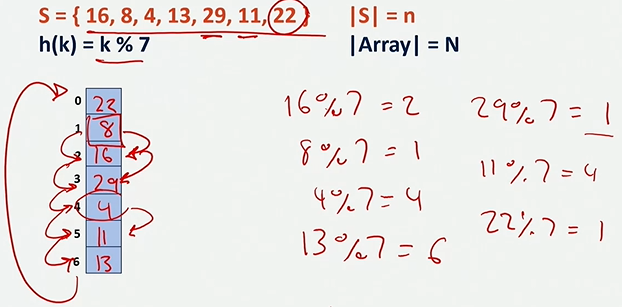 S = { 16, 8, 4, 13, 29, 11, 22 } |S| = n
h(k) = k % 7 |Array| = N
0 22
1 8
2 16
3 29
4 4
5 11
6 13
16%7 = 2
8%7 = 1
4%7 = 4
13%7 = 6
29%7 = 1
11%7 = 4
22%7 = 1